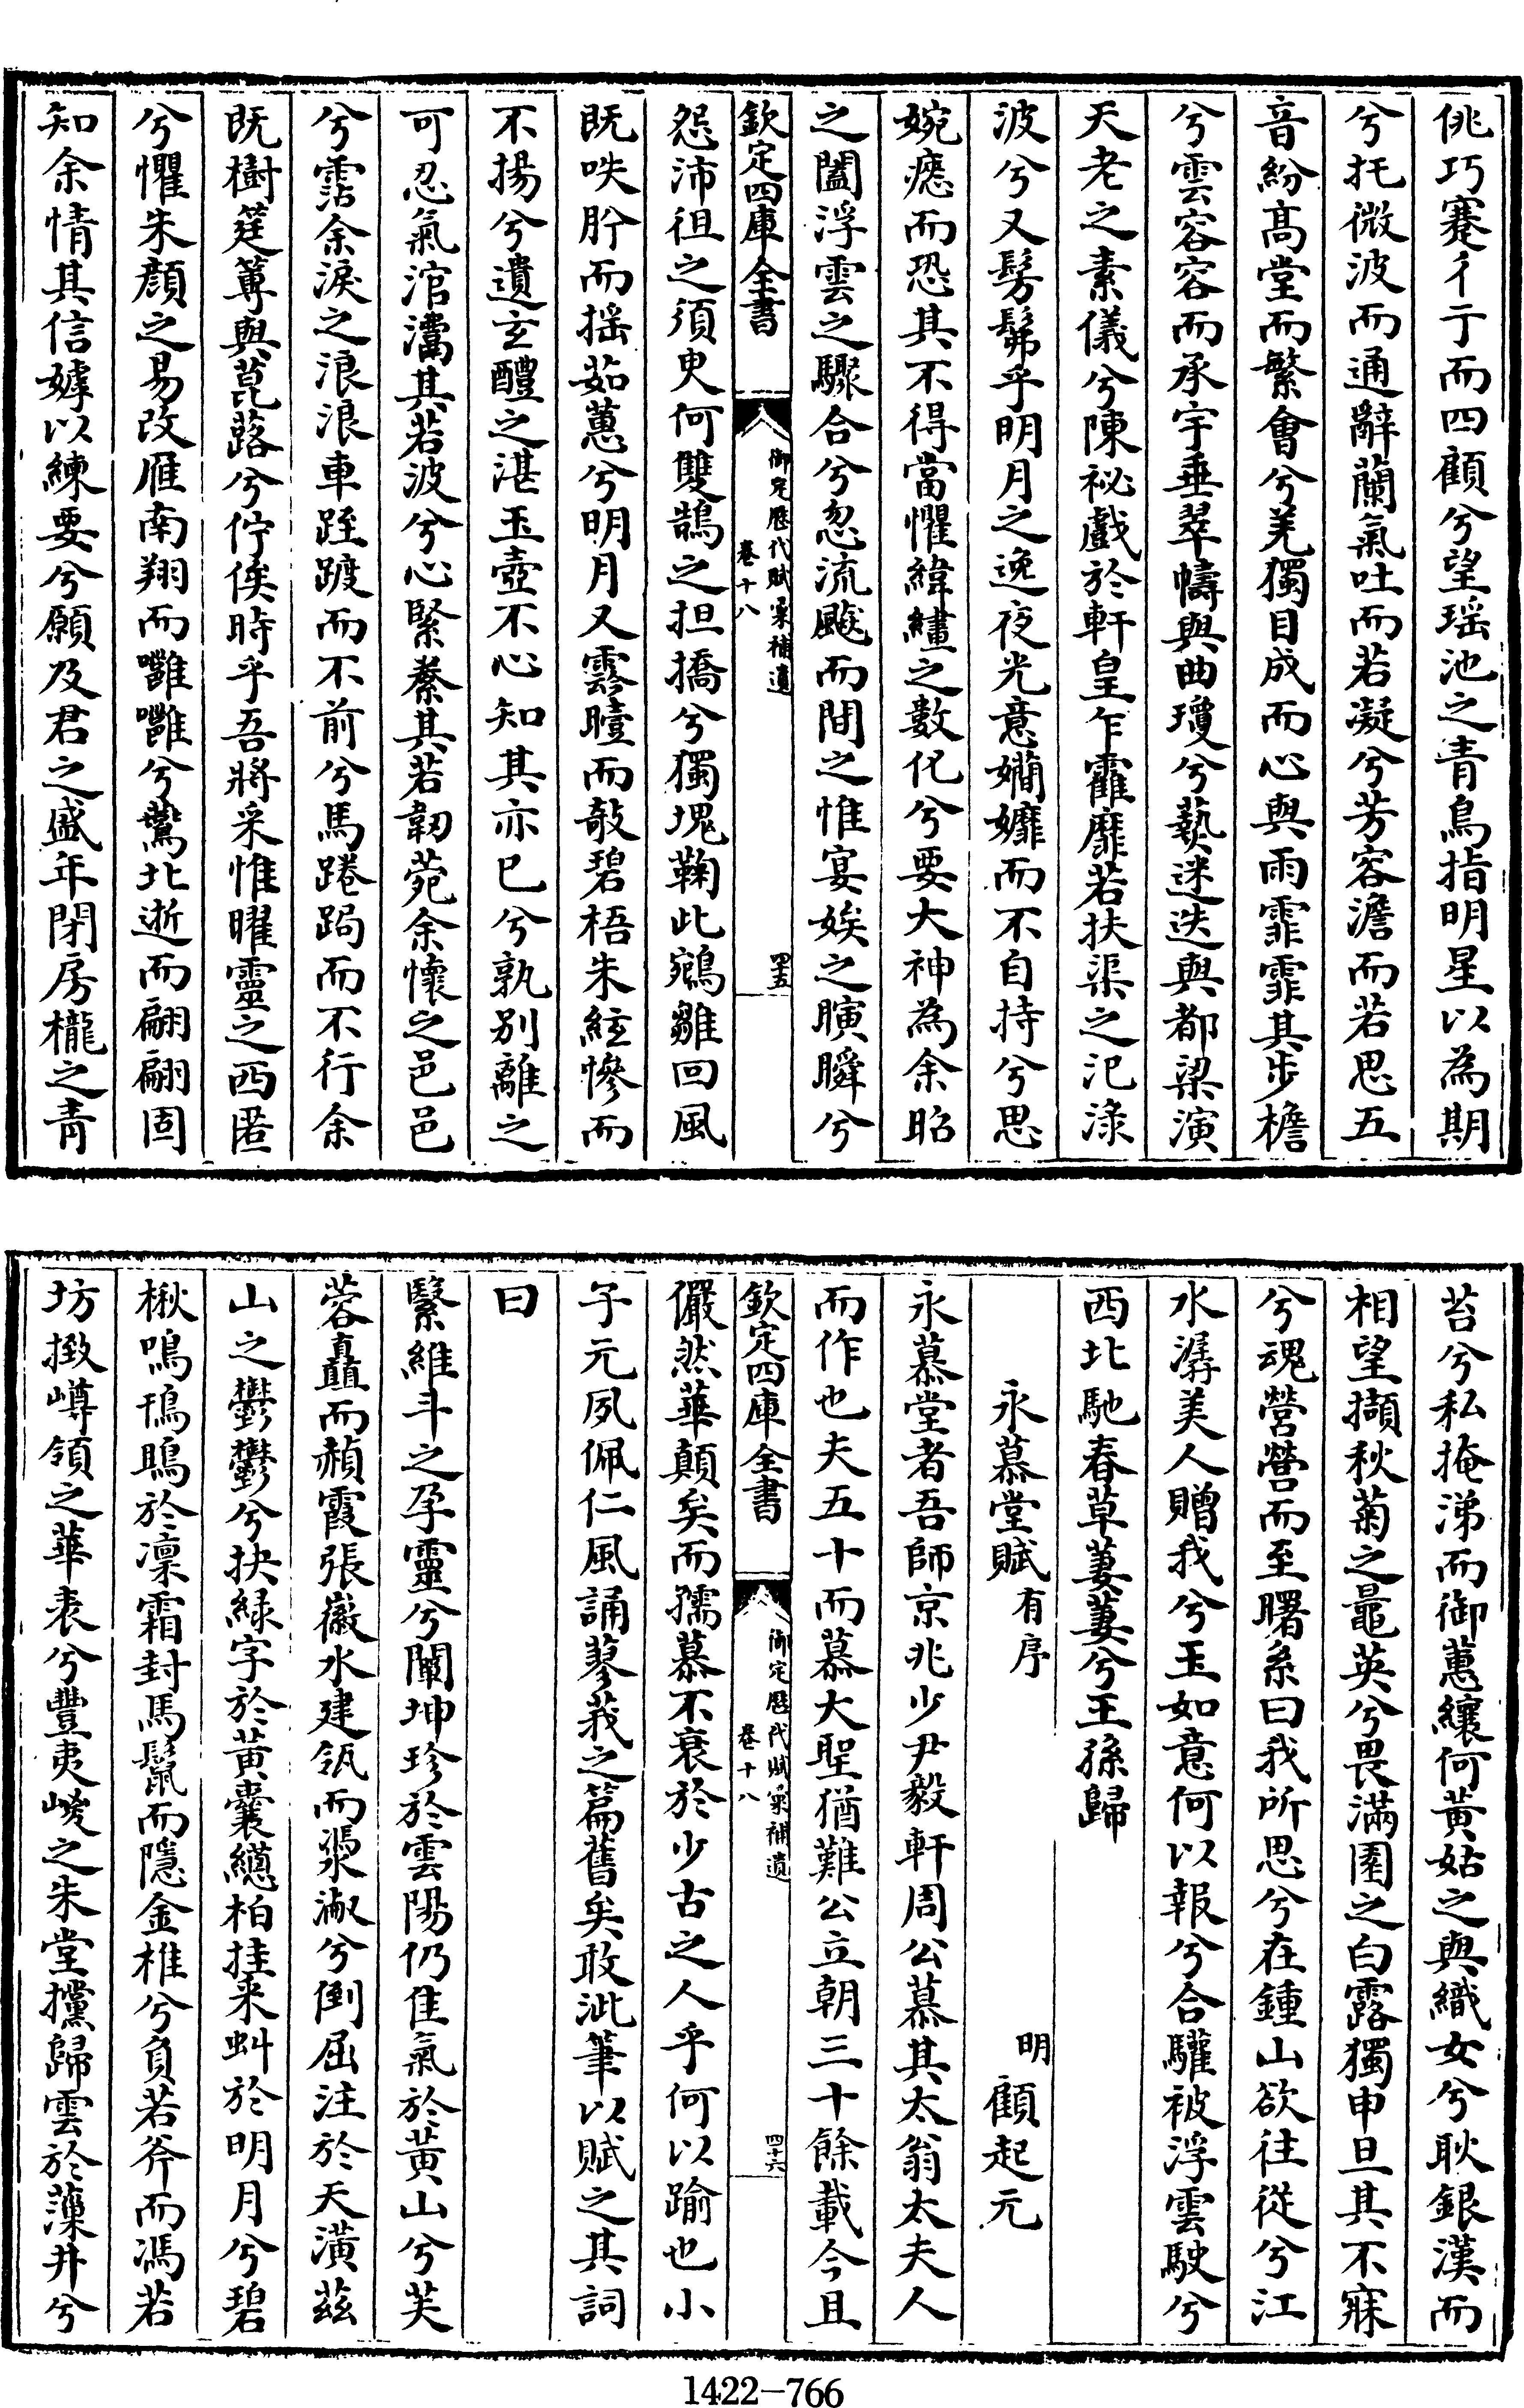 佻巧蹇彳亍而四顧兮望瑶池之青鳥指明星以為期
兮托微波而通辭蘭氣吐而若凝兮芳容澹而若思五
音紛髙堂而繁會兮羌獨目成而心與雨霏霏其步檐
兮雲容容而承宇垂翠幬與曲瓊兮藝迷迭與都梁演
天老之素儀兮陳祕戲於軒皇乍靃靡若扶渠之汜淥
波兮又髣髴乎明月之逸夜光意嫺孊而不自持兮思
婉瘱而恐其不得當懼緯繣之數化兮要大神為余昭
之闔浮雲之驟合兮忽流飈而間之惟宴娭之瞚瞬兮
欽定四庫全書
御定歷代賦彙補遺
卷十八
四十五
怨沛徂之須臾何雙鵠之担撟兮獨塊鞠此鵷雛回風
既咉肸而揺茹蕙兮明月又雲曀而敧碧梧朱絃慘而
不揚兮遺玄醴之湛玉壺不心知其亦已兮孰别離之
可忍氣涫灊其若波兮心緊絭其若韌菀余懷之邑邑
兮霑余淚之浪浪車跮踱而不前兮馬踡跼而不行余
既樹筳篿與菎蕗兮佇俟時乎吾將采惟曜靈之西匿
兮懼朱顔之易改雁南翔而雝雝兮鷖北逝而翩翩固
知余情其信嫮以練要兮願及君之盛年閉房櫳之青
苔兮私掩涕而御蕙纕何黄姑之與織女兮耿銀漢而
相望擷秋菊之鼂英兮畏滿園之白露獨申旦其不寐
兮魂營營而至曙系曰我所思兮在鍾山欲往從兮江
水潺美人贈我兮玉如意何以報兮合驩被浮雲駛兮
西北馳春草萋萋兮王孫歸
永慕堂賦有序
明 顧起元
永慕堂者吾師京兆少尹毅軒周公慕其太翁太夫人
而作也夫五十而慕大聖猶難公立朝三十餘載今且
欽定四庫全書
御定歷代賦彙補遺
卷十八
四十六
儼然華顛矣而孺慕不衰於少古之人乎何以踰也小
子元夙佩仁風誦蓼莪之篇舊矣敢泚筆以賦之其詞
曰
繄維斗之孕靈兮闡坤珍於雲陽仍隹氣於黄山兮芙
蓉矗而赬霞張徽水建瓴而漎漵兮倒屈注於天潢兹
山之鬱鬱兮抉緑字於黄囊繐柏挂釆虯於明月兮碧
楸嗚鳷鵙於凛霜封馬鬛而隱金椎兮負若斧而馮若
坊撽嶟領之華表兮豐夷嵕之朱堂攩歸雲於藻井兮